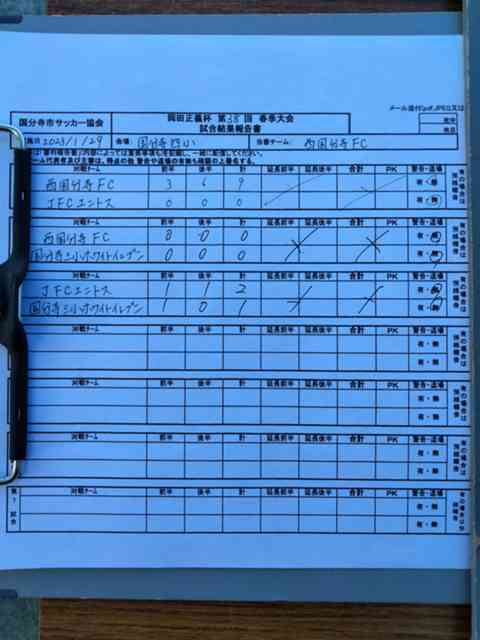 メール送付(pdf,JPEG又は
国分寺市サッカー協会
岡田正義杯 第38回 春季大会
試合結果報告書
2023/1/29 会場: 国分寺四小 当番チーム: 西国分寺FC
対戦チーム 前半 後半 計 延長前半 延長後半 合計 PK 警告・退場
西国分寺FC 3 6 9 有・無
JFCエントス 0 0 0 有・無
西国分寺FC 0 0 0 有・無
国分寺三小ホワイトイレブン 0 0 0 有・無
対戦チーム 前半 後半 計 延長前半 延長後半 合計 PK 警告・退場
JFCエントス 1 1 2 有・無
国分寺三小ホワイトイレブン 1 0 1 有・無
対戦チーム 前半 後半 計 延長前半 延長後半 合計 PK 警告・退場
有・無
有・無
対戦チーム 前半 後半 計 延長前半 延長後半 合計 PK 警告・退場
有・無
有・無
対戦チーム 前半 後半 計 延長前半 延長後半 合計 PK 警告・退場
有・無
有・無
対戦チーム 前半 後半 計 延長前半 延長後半 合計 PK 警告・退場
有・無
有・無